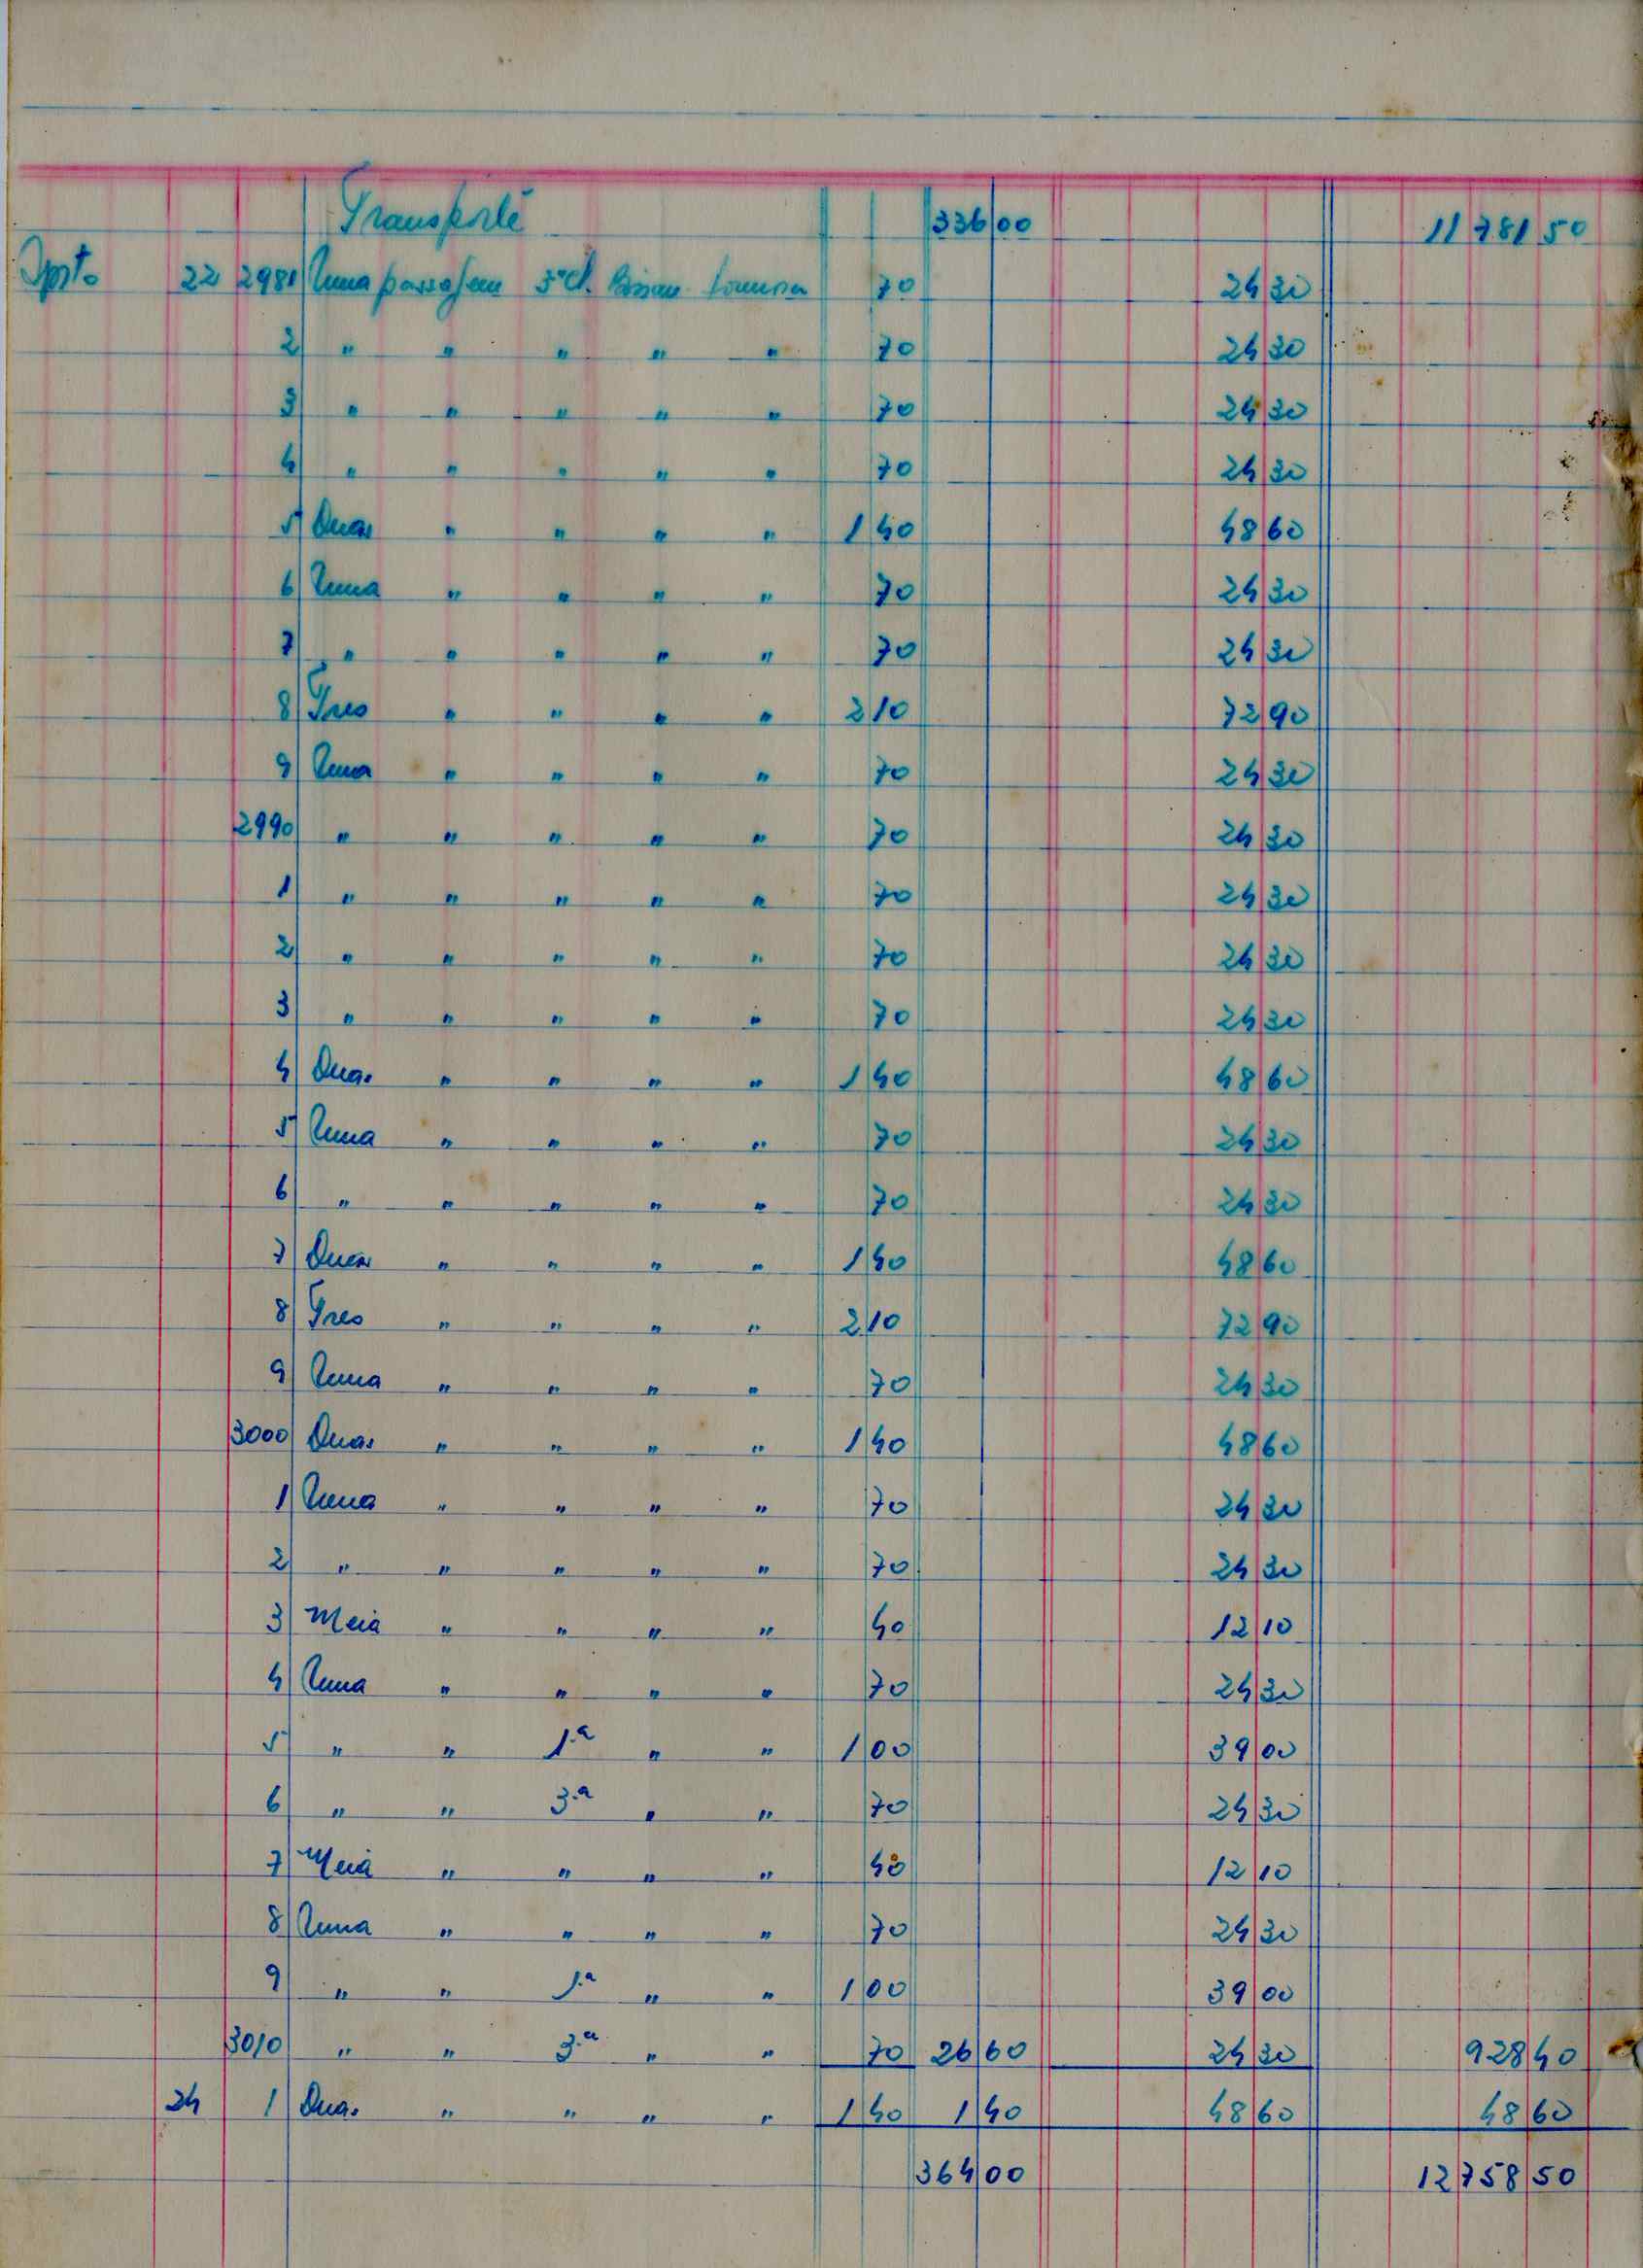 Transporte 336 00 11 781 50
Agsto 22 2981 Uma passagem 3ª cl. Bissau 70 24 30
2 " " " " " 70 24 30
3 " " " " " 70 24 30
4 " " " " " 70 24 30
5 Duas " " " " 1 40 48 60
6 Uma " " " " 70 24 30
7 " " " " " 70 24 30
8 Tres " " " " 2 10 72 90
9 Uma " " " " 70 24 30
2990 " " " " " 70 24 30
1 " " " " " 70 24 30
2 " " " " " 70 24 30
3 " " " " " 70 24 30
4 Duas " " " " 1 40 48 60
5 Uma " " " " 70 24 30
6 " " " " " 70 24 30
7 Duas " " " " 1 40 48 60
8 Tres " " " " 2 10 72 90
9 Uma " " " " 70 24 30
3000 Duas " " " " 1 40 48 60
1 Uma " " " " 70 24 30
2 " " " " " 70 24 30
3 Meia " " " " 40 12 10
4 Uma " " " " 70 24 30
5 " " 1.ª " " 1 00 39 00
6 " " 3.ª " " 70 24 30
7 Meia " " " " 40 12 10
8 Uma " " " " 70 24 30
9 " " 1.ª " " 1 00 39 00
3010 " " 3.ª " " 70 26 60 24 30 928 40
24 1 Duas " " " " 1 40 1 40 48 60 48 60
364 00 12 758 50